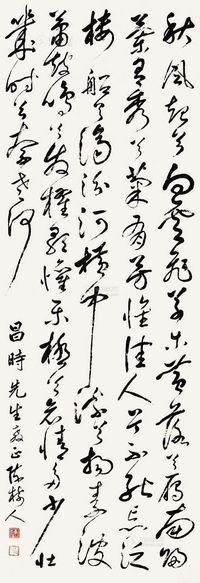 秋風起兮白雲飛草木黃落兮雁南歸
蘭有秀兮菊有芳懷佳人兮不能忘泛
樓船兮濟汾河橫中流兮揚素波
簫鼓鳴兮發櫂歌歡樂極兮哀情多少壯
幾時兮奈老何
昌時先生教正陳樹人